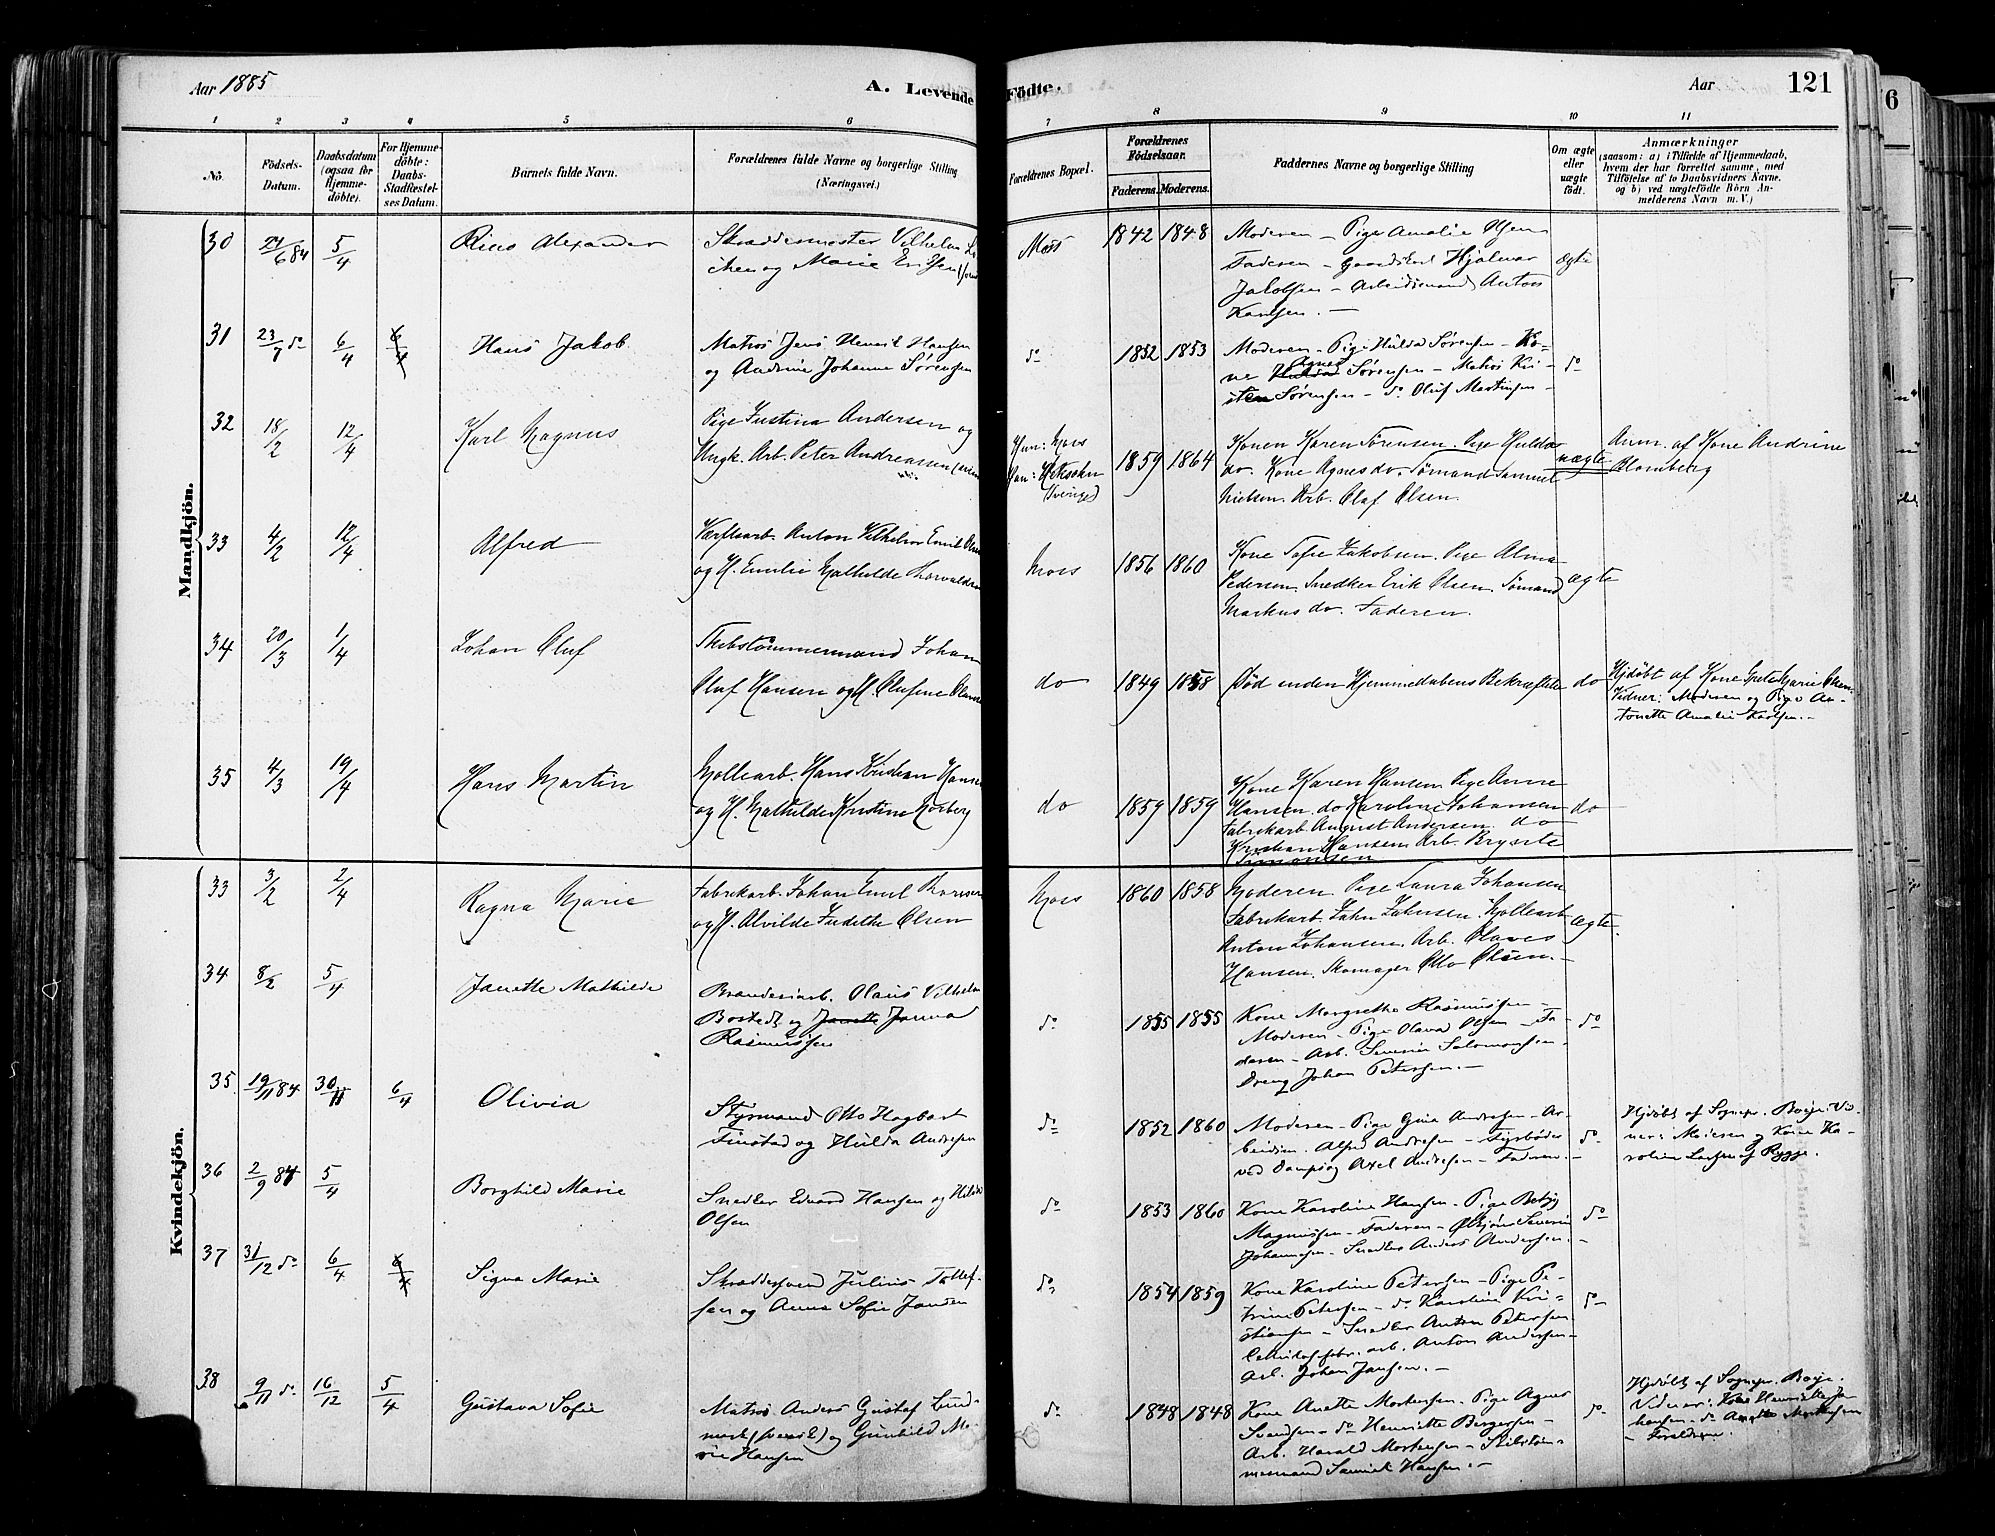 Aar 1885
A. Levende
Födte.
Aar
121
6
1 2 3 4 5 6 7 8 9 10 11
No.
Födsels-
Datum.
Daabsdatum
(ogsaa for
Hjemme-
döbte).
For Hjemme-
döbte:
Daabs-
Stadfæstel-
ses Datum.
Barnets fulde Navn.
Forældrenes fulde Navne og borgerlige Stilling
(Næringsvei.)
Forældrenes Bopæl.
Forældrenes
Födselsaar.
Faderens. Moderens.
Faddernes Navne og borgerlige Stilling
Om ægte
eller
uægte
født.
Anmærkninger
(saasom: a) i Tilfælde af Hjemmedaab,
hvem der har forrettet samme, med
Tilföielse af to Daabsvidners Navne,
og b) ved uægtefödte Börn An-
melderens Navn m. V.)
Mandkjön.
30 5/4 Alexander
Skræddermester Vilhelm
og Marie Eriksen
Moss 1842 1848
Moderen – Pige Amalie Olsen
Faderen – Gaardskarl Hjalmar
Jakobsen – Arbeidsmand Anton
Karlsen. –
Ægte
31 23/7 do 6/4 6/4 Hans Jakob
Matros Jens Henrik Hansen
og Andrine Johanne Sørensen
do 1852 1853
Moderen – Pige Hulda Sørensen – Ko-
ne Agnes Sørensen – Matros Kri-
sten Sørensen – do Oluf Martinsen –
do
32 18/2 12/4 Karl Magnus
Pige Justina Andersen og
Ungk. Arb. Peter Andreassen
Hun: Moss
Han:
(Sverige)
1859 1864
Konen Karen Sørensen. Pige Hulda
do. Kone Agnes do. Sømand Samuel
Nielsen. Arb. Olaf Olsen.
uægte
Anm. af Kone Andrine
Blomberg
33 4/2 12/4 Alfred
Værftsarb. Anton Vilhelm Emil
og H. Emilie Mathilde Thorvaldsen
Moss 1856 1860
Kone Sofie Jakobsen. Pige Alma
Pedersen. Snedker Erik Olsen. Sømand
Markus do. Faderen.
ægte
34 20/3 1/4 Johan Oluf
Skibstømmermand Johan
Oluf Hansen og H. Olufine
do 1849 1858
Død inden Hjemmedaabens Bekræftelse
do
Hjdøbt af Kone Grete Marie Olsen.
Vidner: Moderen og Pige An-
tonette Amalie Karlsen. –
35 4/3 19/4 Hans Martin
Møllearb. Hans Kristian Hansen
og H. Mathilde Kristine Norberg
do 1859 1859
Kone Karen Hansen. Pige Anne
Hansen. do Karoline Johansen
Fabrikarb. August Andersen. do
Kristian Hansen. Arb. Brynte
Simonsen
do
Kvindekjön.
33 3/2 2/4 Ragna Marie
Fabrikarb. Johan Emil
og H. Alvilde Fredrikke Olsen
Moss 1860 1858
Moderen. Pige Laura Johansen
Fabrikarb. John Johnsen. Møllearb.
Anton Johansen. Arb. Olaves
Hansen. Skomager Otto Olsen. –
ægte.
34 8/2 5/4 Janette Mathilde
Brænderiarb. Olaus Vilhelm
Bosted og Janette Janna
Rasmussen
do 1855 1855
Kone Margrethe Rasmussen –
Moderen – Pige Olava Olsen – Fa-
deren – Arb. Severin Salomonsen –
Dreng Johan Petersen. –
do
35 19/11 84 30/11 6/4 Olivia
Styrmand Otto Hagbart
Finstad og Hulda Andresen
do 1852 1860
Moderen – Pige Gina Andresen – Ar-
beidsm. Alfred Andresen – Fyrbøder
ved Dampsk. Axel Andresen – Faderen. –
do
Hjdøbt af Sognepr. Boeje. Vid-
ner: Moderen og Kone Ka-
roline Larsen af Rygge.
36 2/9 84 5/4 Borghild Marie
Snedker Edvard Hansen og Hilda
Olsen
do 1853 1860
Kone Karoline Hansen – Pige Betzy
Magnussen – Faderen – Severin
Johannesen – Snedker Anders Andersen. –
do
37 31/12 do 6/4 6/4 Signa Marie
Skræddersvend Julius Tollef-
sen og Anna Sofie Jansen
do 1854 1859
Kone Karoline Petersen – Pige Pe-
trine Petersen – do Karoline Kri-
stiansen – Snedker Anton Petersen
arb. Anton Andersen –
Arb. Johan Jansen. –
do
38 9/11 do 16/12 5/4 Gustava Sofie
Matros Anders Gustaf Lund-
mark (svensk) og Gunhild Ma-
rie Hansen
do 1848 1848
Kone Anette Mortensen. Pige Agnes
Svendsen – do Henriette Bergersen –
Arb. Harald Mortensen – Skibstøm-
mermand Hansen. –
do
Hjdøbt af Sognepr. Boeje.
Vidner: Kone Henriette Jo-
hansen – do Anette Mortensen
– Forældrene.